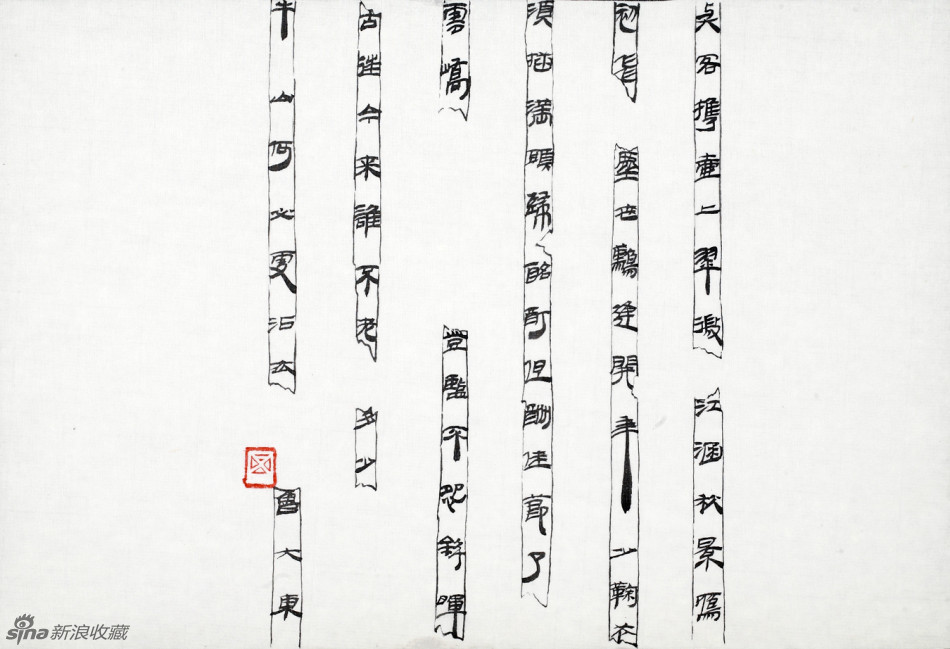 与客攜壷上翠微 江涵秋景鴈
初飛 塵世難逢開年少鞠
須插滿頭歸酩酊但酬佳節了
雲嶠 登臨不怨斜暉
古往今来誰不老 多少
牛山何必更沾衣 魯大東
sina新浪收藏